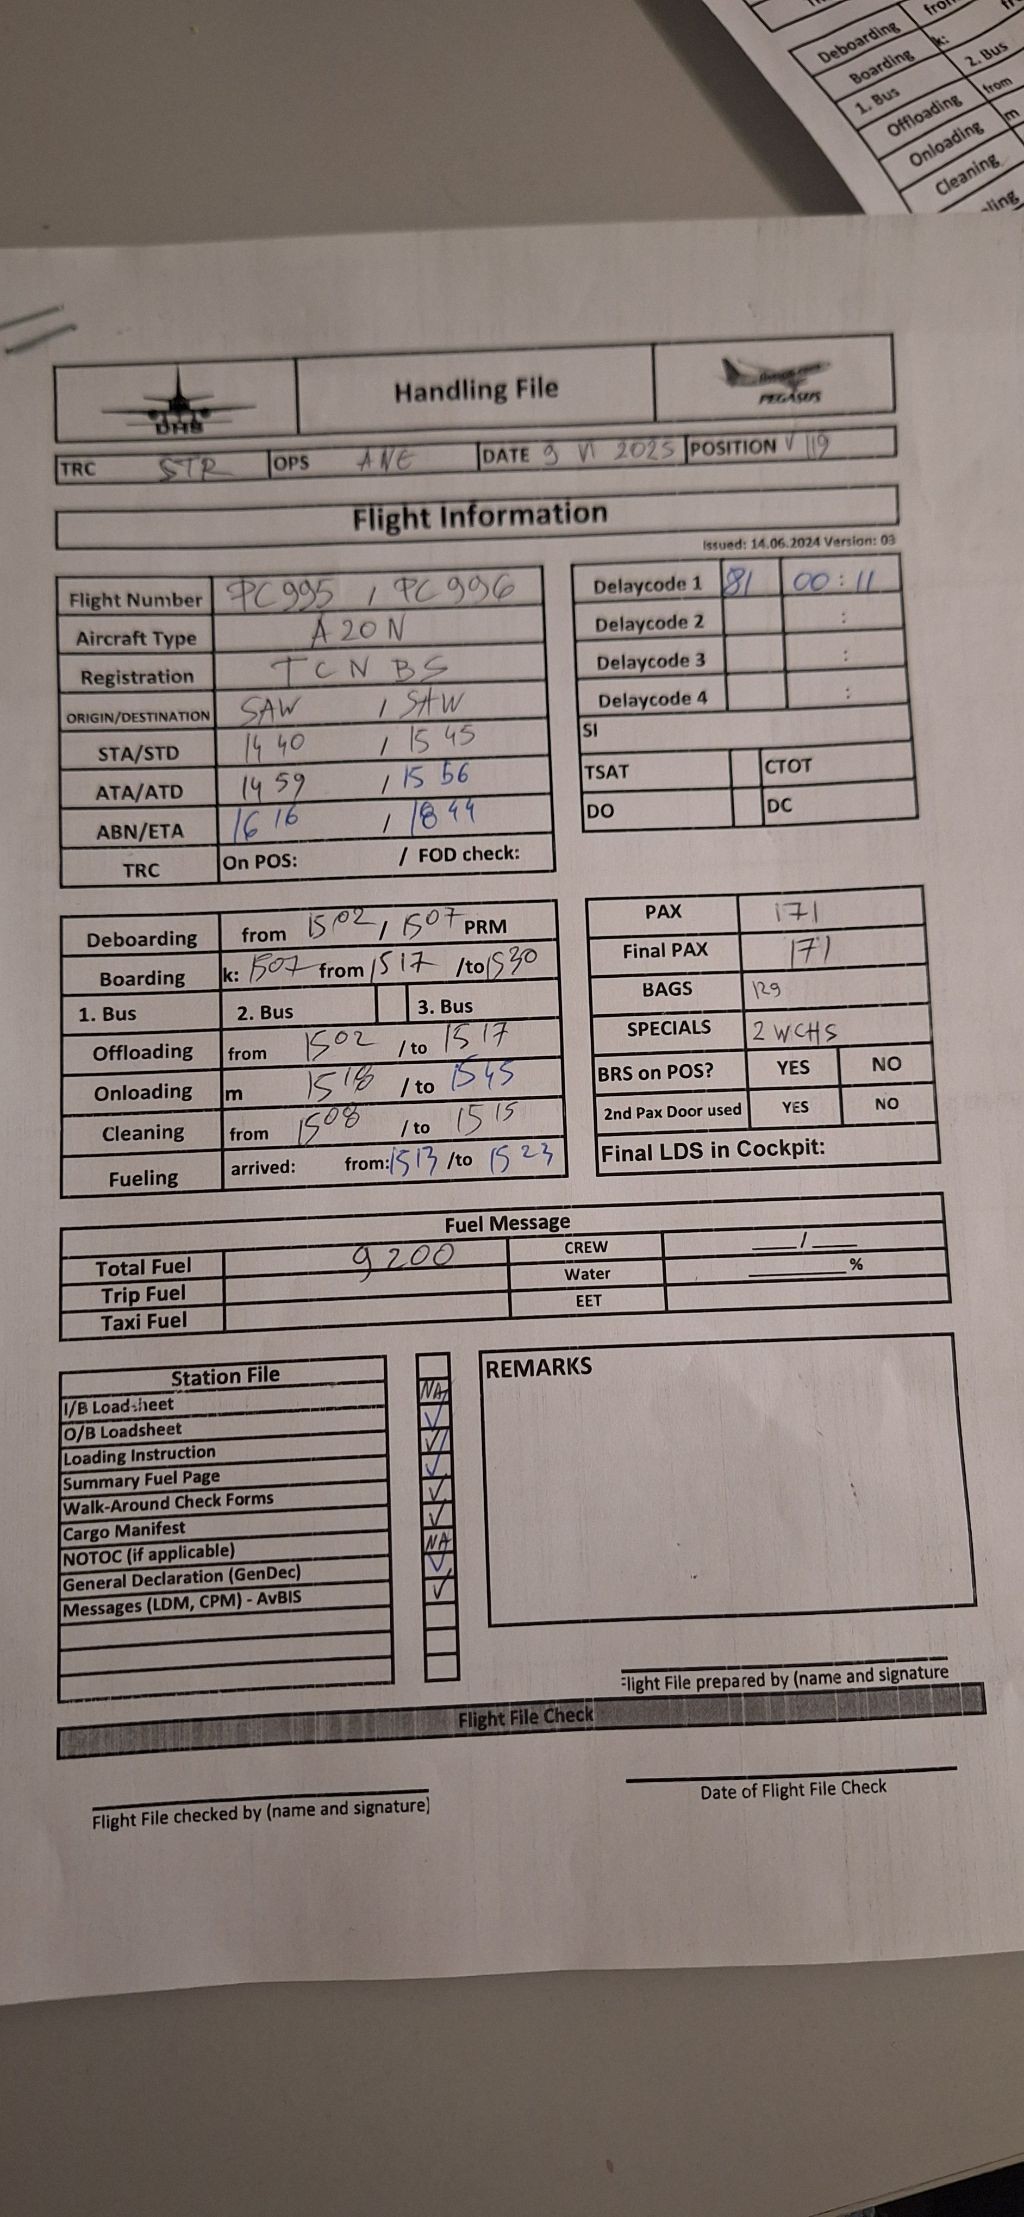 Deboarding from
Boarding k:
1. Bus 2. Bus
Offloading from
Onloading m
Cleaning
DHS Handling File PEGASUS
TRC STR OPS ANE DATE 9 VI 2025 POSITION V 119
Flight Information
Issued: 14.06.2024 Version: 03
Flight Number PC 995 / PC 996
Aircraft Type A20N
Registration TCNBS
ORIGIN/DESTINATION SAW / SAW
STA/STD 14 40 / 15 45
ATA/ATD 14 59 / 15 56
ABN/ETA 16 16 / 18 44
TRC On POS: / FOD check:
Delaycode 1 81 00:11
Delaycode 2 :
Delaycode 3 :
Delaycode 4 :
SI
TSAT CTOT
DO DC
Deboarding from 1502 / 1507 PRM
Boarding k: 1507 from 1517 /to 1530
1. Bus 2. Bus 3. Bus
Offloading from 1502 / to 1517
Onloading m 1518 / to 1545
Cleaning from 1508 / to 1515
Fueling arrived: from: 1513 /to 1523
PAX 171
Final PAX 171
BAGS 129
SPECIALS 2 WCHS
BRS on POS? YES NO
2nd Pax Door used YES NO
Final LDS in Cockpit:
Fuel Message
Total Fuel 9200 CREW ___/___
Trip Fuel Water ______%
Taxi Fuel EET
Station File
I/B Loadsheet NA
O/B Loadsheet ✓
Loading Instruction ✓
Summary Fuel Page ✓
Walk-Around Check Forms ✓
Cargo Manifest ✓
NOTOC (if applicable) NA
General Declaration (GenDec) ✓
Messages (LDM, CPM) - AvBIS ✓
REMARKS
Flight File prepared by (name and signature
Flight File Check
Flight File checked by (name and signature)
Date of Flight File Check